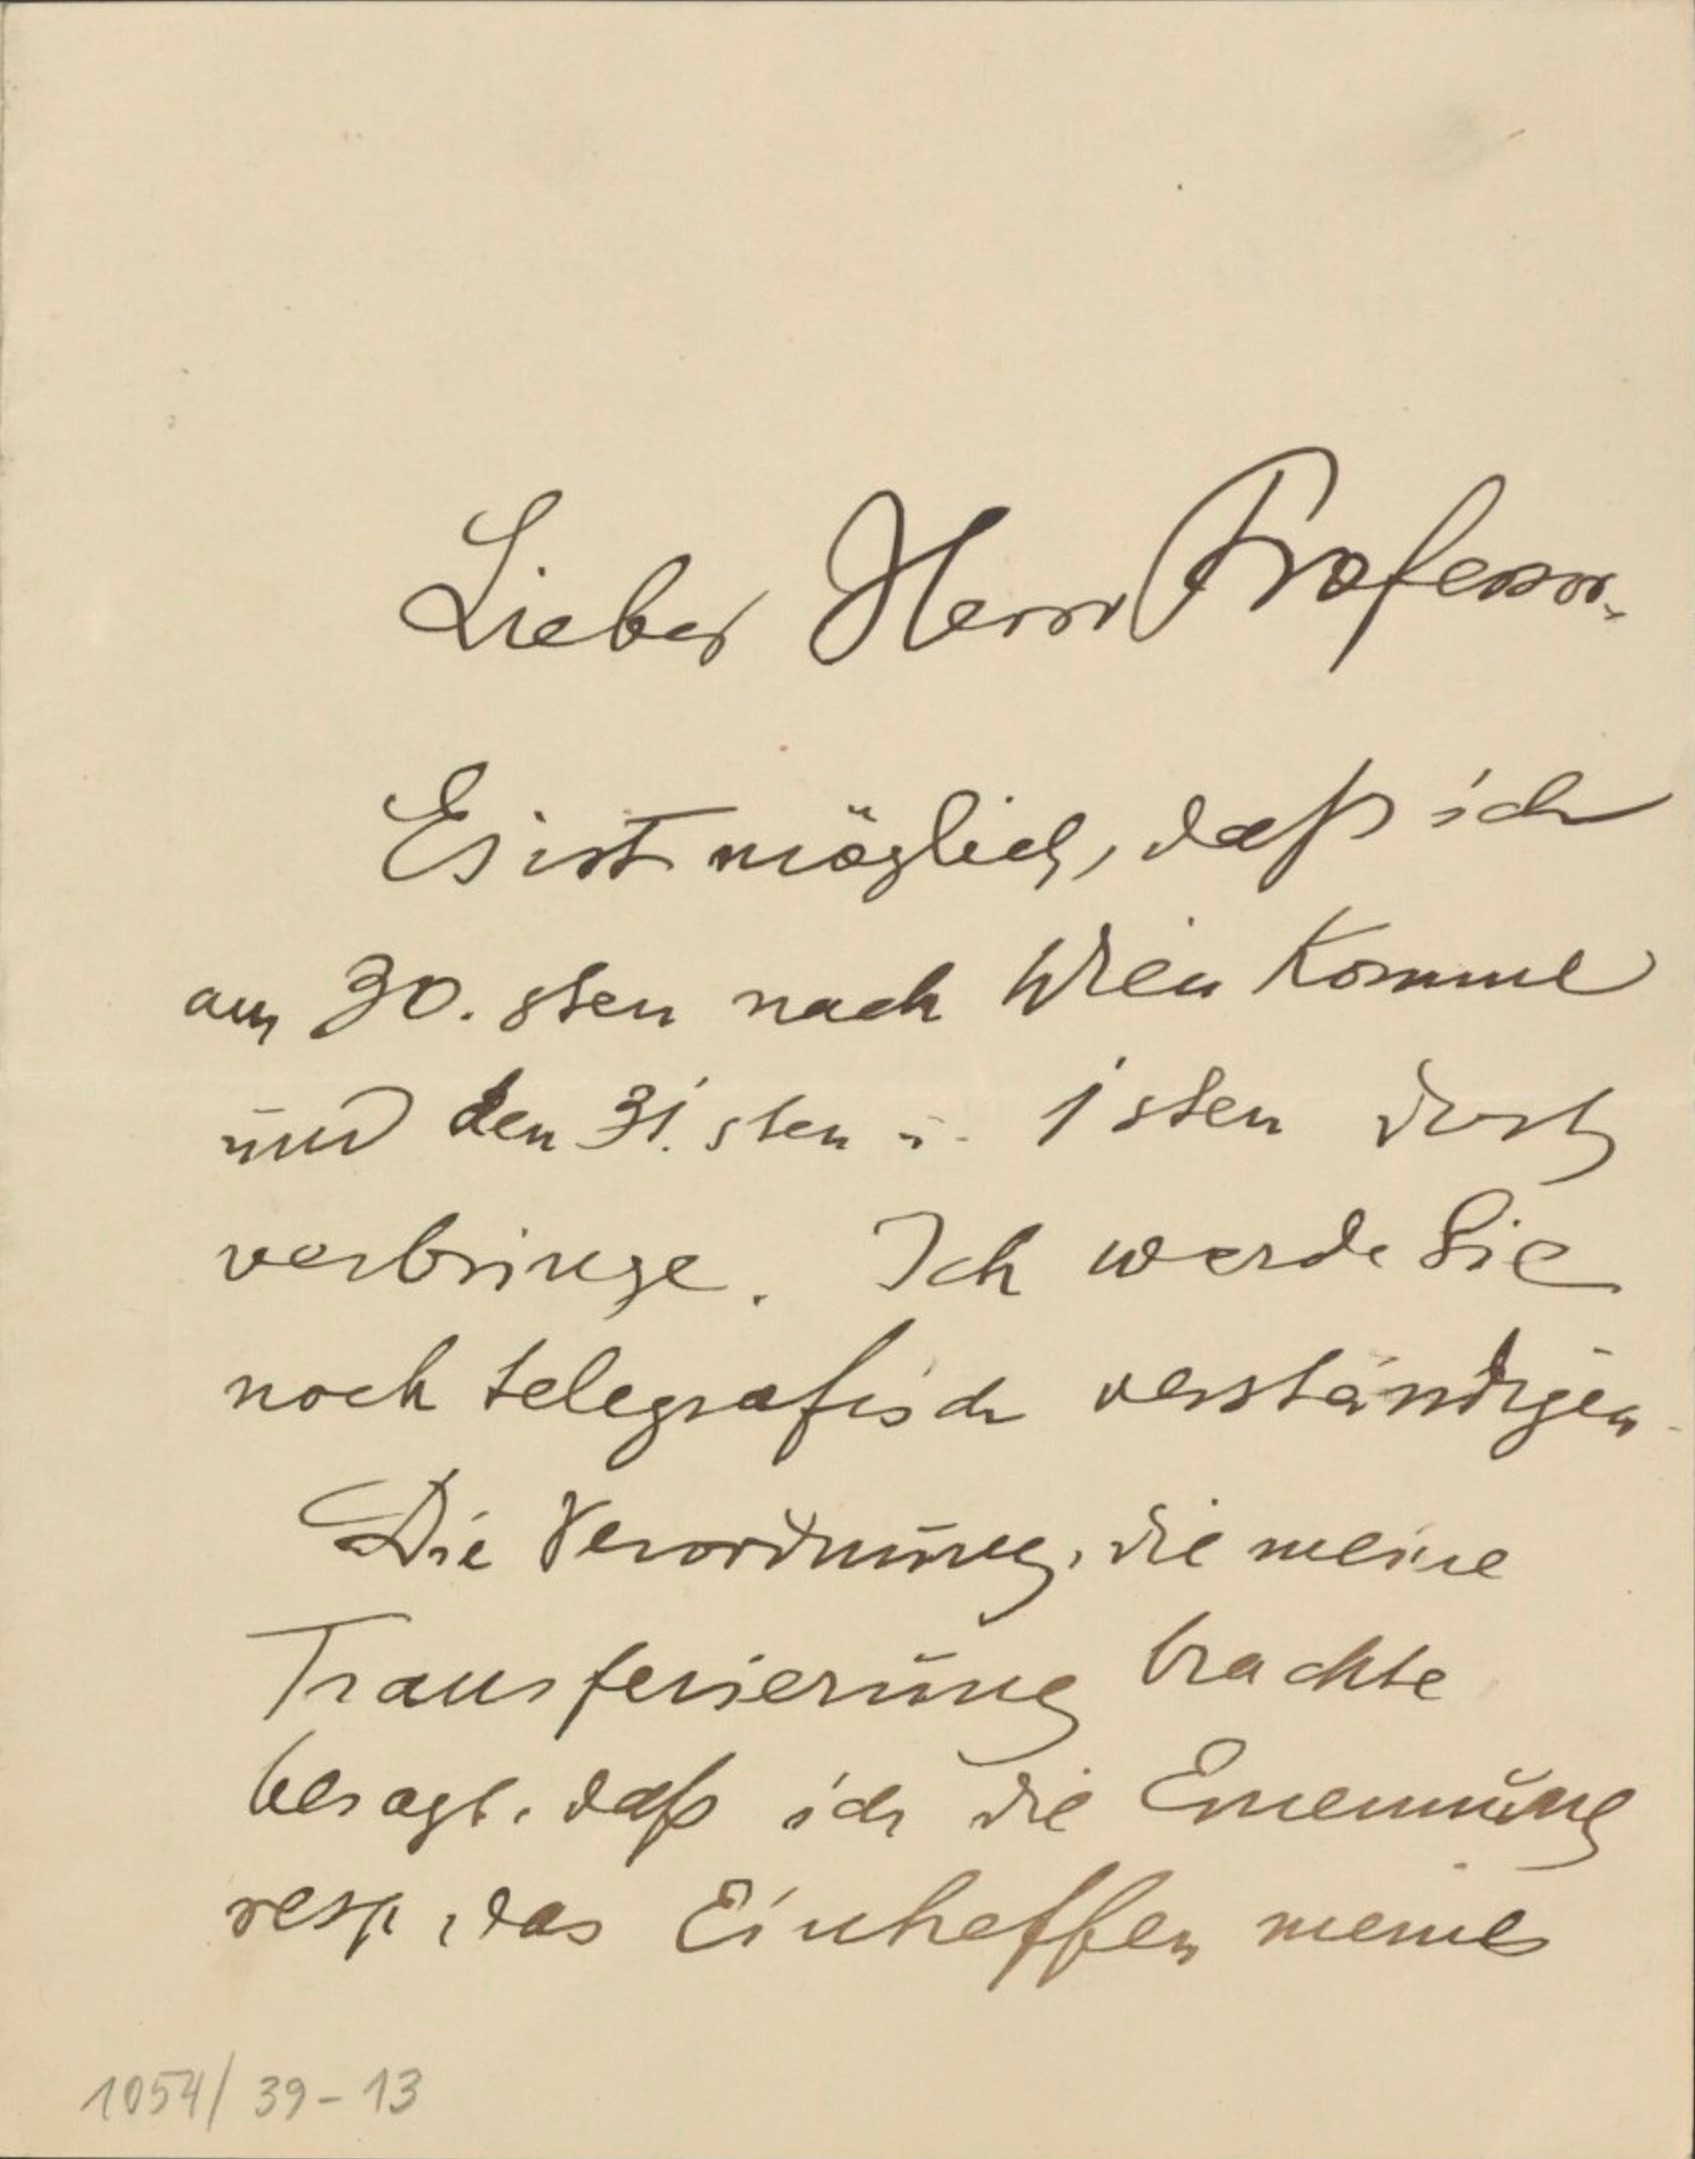 Lieber Herr Professor.
Es ist möglich, daß ich
am 30. sten nach Wien komme
und den 31. sten u. 1 sten dort
verbringe. Ich werde Sie
noch telegrafisch verständigen.
Die Verordnung, die meine
Transferierung brachte
besagt, daß ich die Ernennung
resp. das Eintreffen meines
1054/39-13